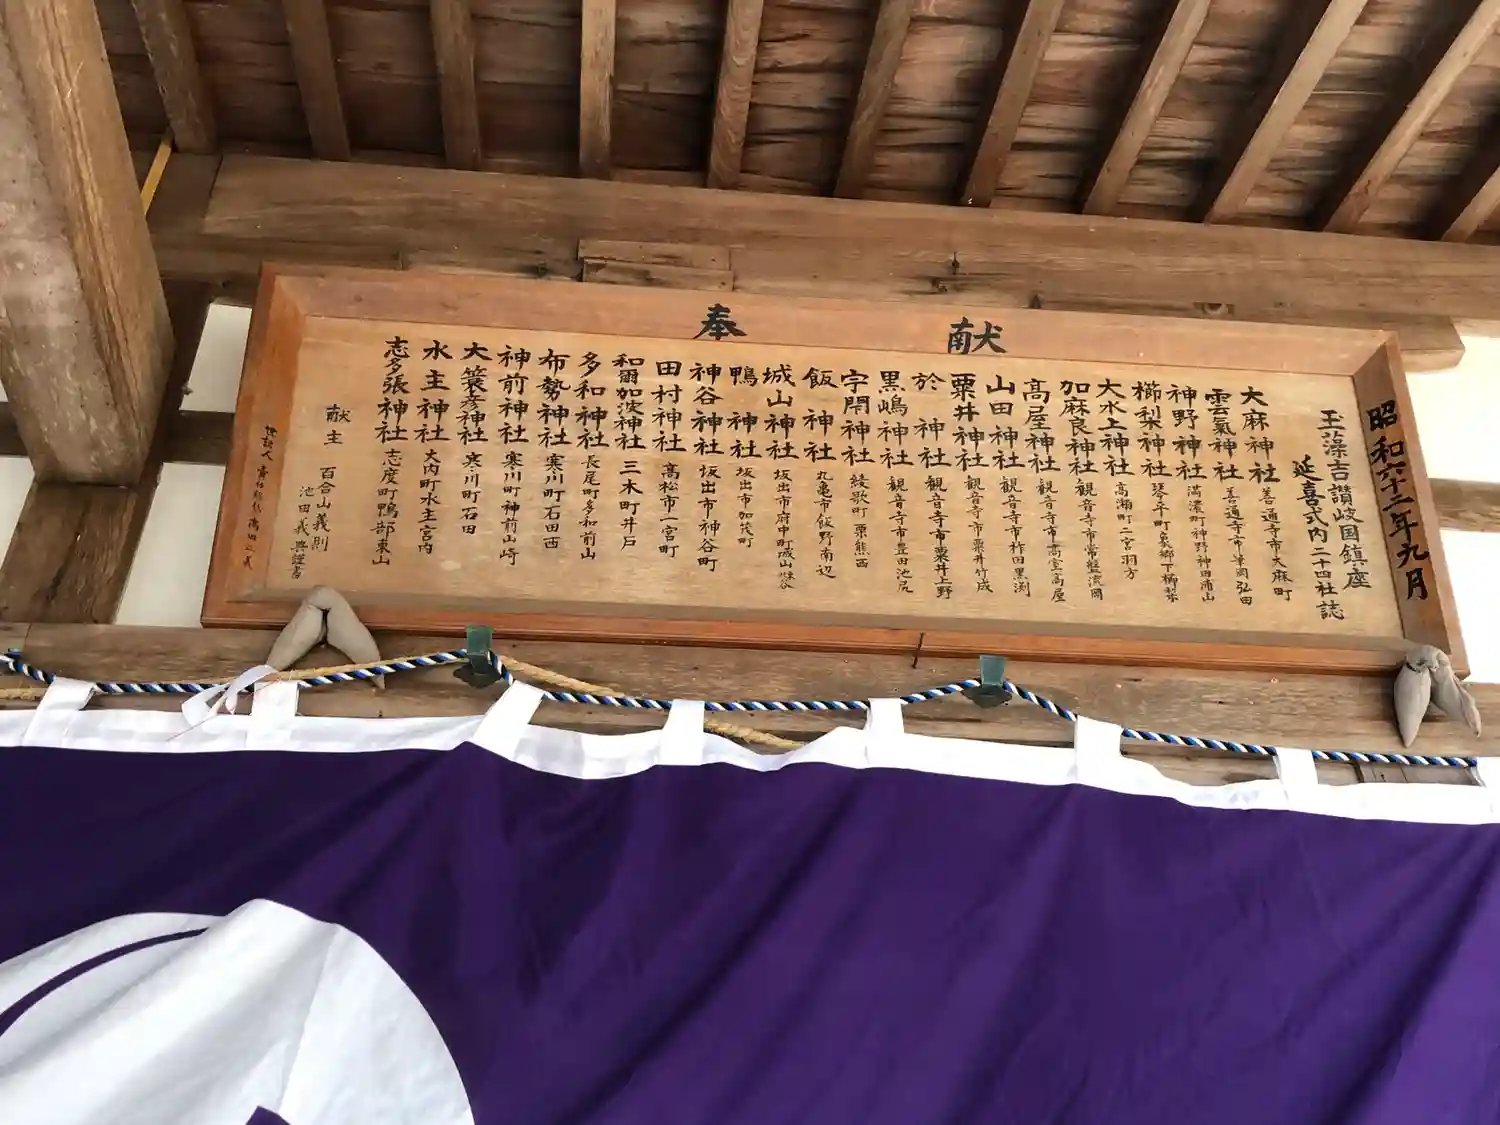 奉献
昭和六十二年九月
玉藻吉讃岐国鎮座
延喜式内二十四社誌
大麻神社 善通寺市大麻町
雲氣神社 善通寺市筆岡弘田
神野神社 満濃町神野神田浦山
櫛梨神社 琴平町象郷下櫛梨
大水上神社 高瀬町二宮羽方
加麻良神社 観音寺市常盤流岡
高屋神社 観音寺市高室高屋
山田神社 観音寺市柞田黒渕
粟井神社 観音寺市粟井竹成
於神社 観音寺市粟井上野
黒嶋神社 観音寺市豊田池尻
宇閇神社 綾歌町栗熊西
飯神社 丸亀市飯野南辺
城山神社 坂出市府中町城山
鴨神社 坂出市加茂町
神谷神社 坂出市神谷町
田村神社 高松市一宮町
和爾加波神社 三木町井戸
多和神社 長尾町多和前山
布勢神社 寒川町石田西
神前神社 寒川町神前山崎
大簑彦神社 寒川町石田
水主神社 大内町水主宮内
志多張神社 志度町鴨部東山
献主 百合山義則
池田義興謹書
世話人